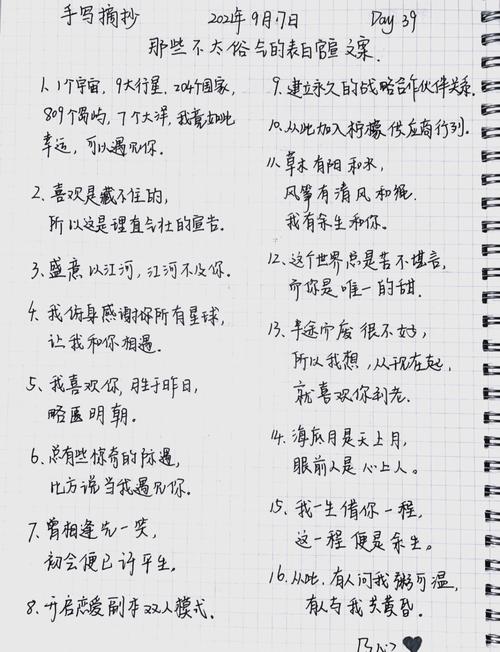 手写摘抄 2021年9月7日 Day 39
那些不太俗气的表白官宣文案.
1. 1个宇宙, 9大行星, 204个国家,
809个岛屿, 7个大洋, 我竟如此
幸运, 可以遇见你.
2、喜欢是藏不住的,
所以这是理直气壮的宣告.
3、盛意以江河, 江河不及你.
4、我俯身感谢你所有星球,
让我和你相遇.
5、我喜欢你, 胜于昨日,
略匿明朝.
6、总有些惊奇的际遇,
比方说当我遇见你.
7、曾相逢先一笑,
初会便已许平生.
8、开启恋爱副本双人模式.
9、建立永久的战略合作伙伴关系.
10、从此加入柠檬供应商行列.
11、草木有阳和水,
风筝有清风和绳.
我有余生和你.
12、这个世界总是苦不堪言,
而你是唯一的甜.
13、半途而废很不好,
所以我想, 从现在起,
就喜欢你到老.
14、海底月是天上月,
眼前人是心上人。
15、我一生借你一程,
这一程便是余生。
16、从此, 有人问我粥可温,
有人与我共黄昏.